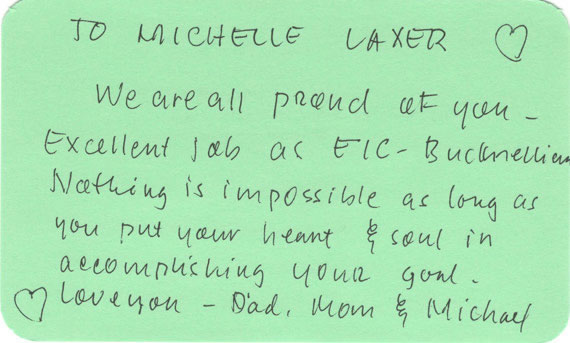 TO MICHELLE LAXER ♡
We are all proud of you -
Excellent Job as EIC - Bucknellian
Nothing is impossible as long as
you put your heart & soul in
accomplishing your goal.
♡ Love you - Dad, Mom & Michael